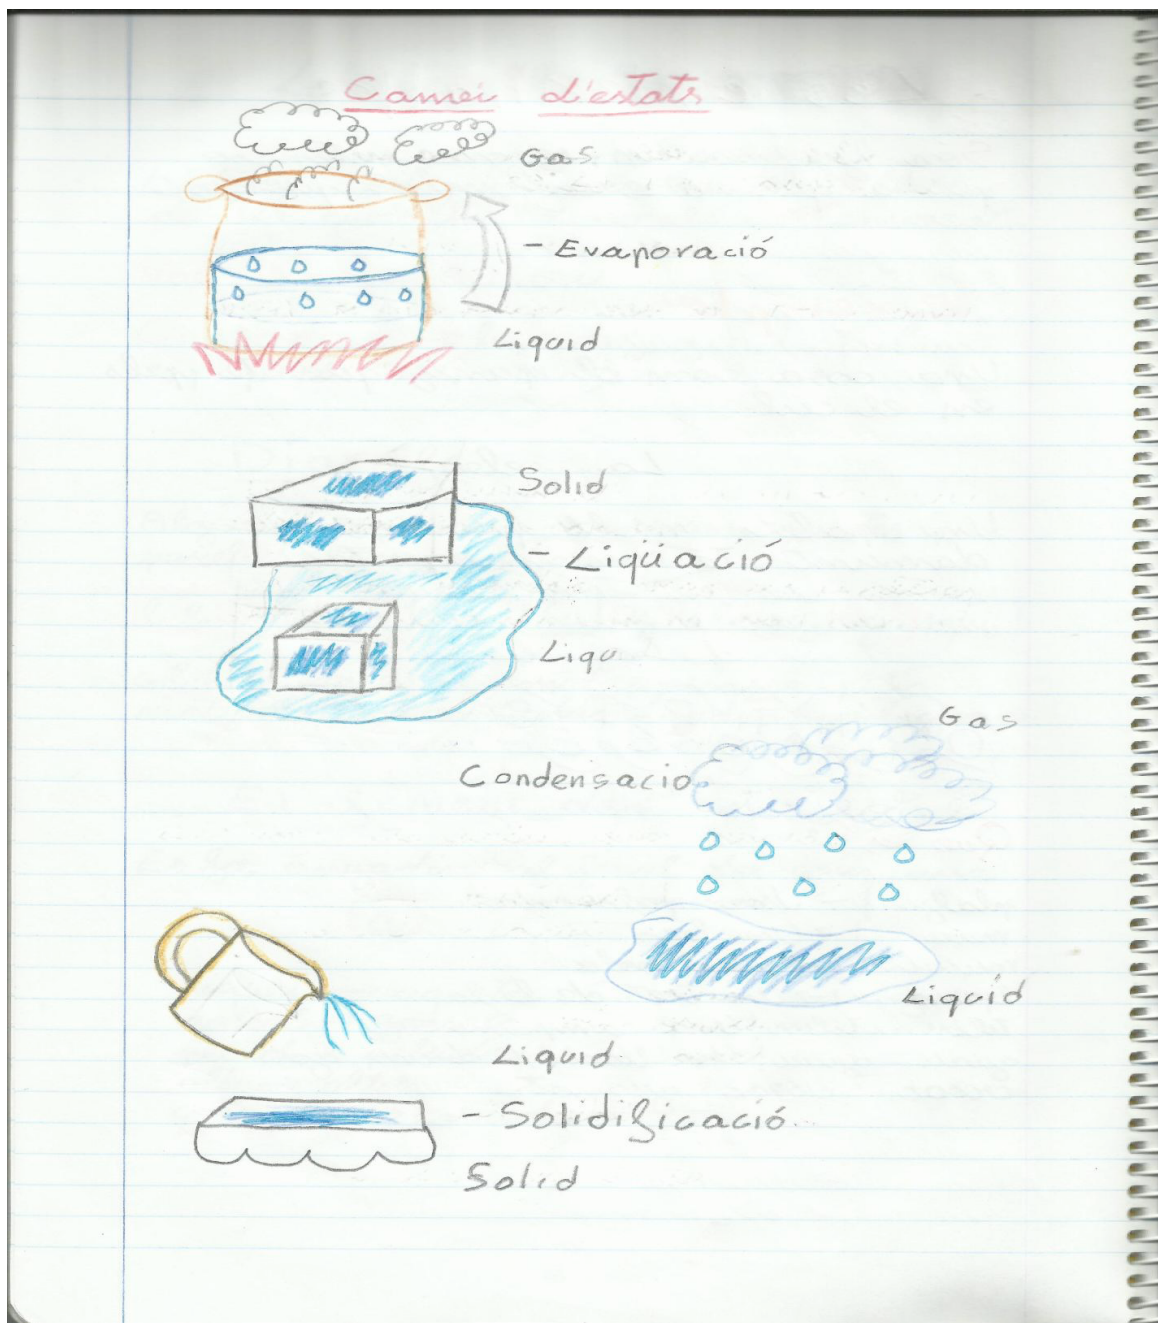 Camvi d'estats
Gas
- Evaporació
Liquid
Solid
- Liqüació
Liqu
Gas
Condensacio
Liquid
Liquid
- Solidificació
Solid